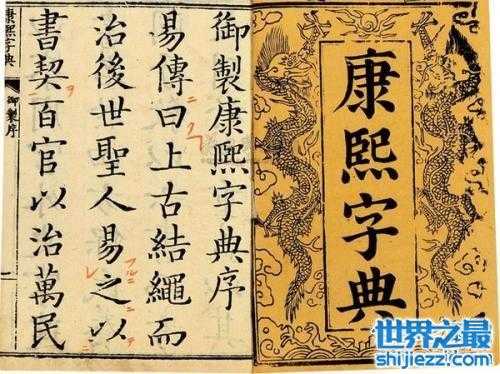 康熙字典
御製康熙字典序
易傳曰上古結繩而
治後世聖人易之以
書契百官以治萬民
康熙字典
御製序
世界之最
shijiezz.com